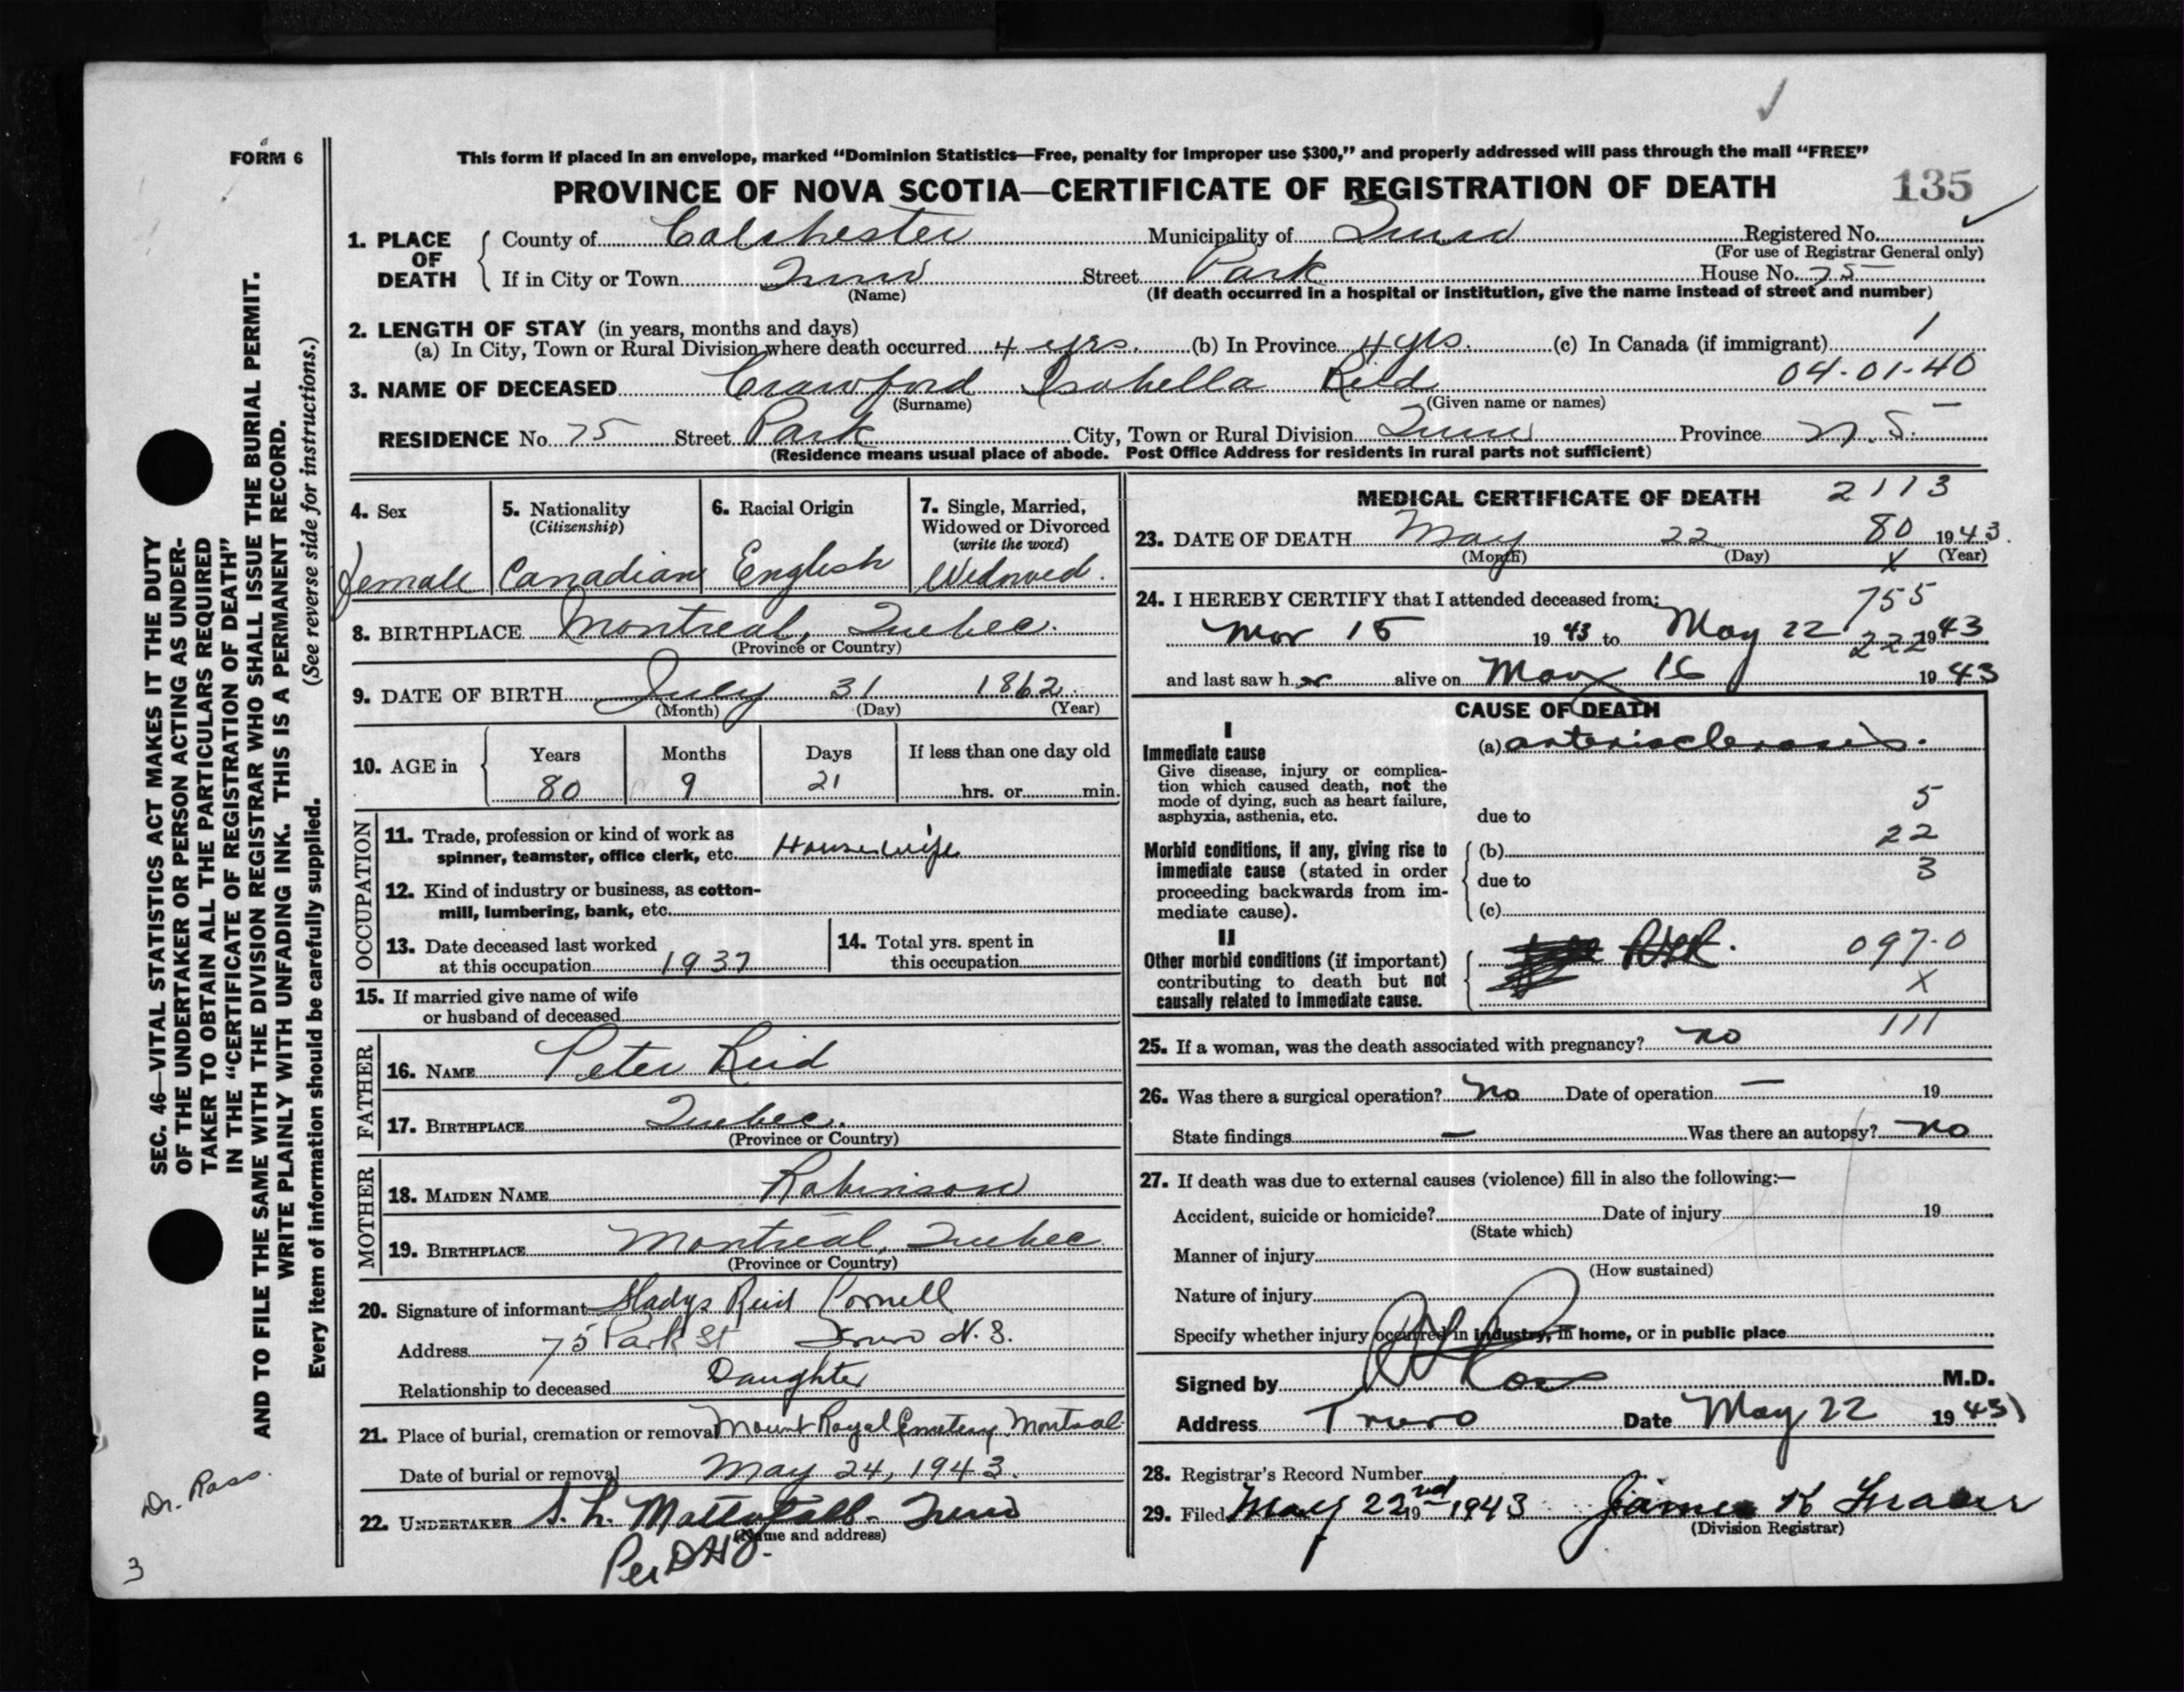 FORM 6
This form if placed in an envelope, marked “Dominion Statistics—Free, penalty for improper use $300,” and properly addressed will pass through the mail “FREE”
PROVINCE OF NOVA SCOTIA—CERTIFICATE OF REGISTRATION OF DEATH 135
1. PLACE OF DEATH County of Colchester Municipality of Truro Registered No.
(For use of Registrar General only)
If in City or Town Truro Street Park House No. 75
(Name) (If death occurred in a hospital or institution, give the name instead of street and number)
2. LENGTH OF STAY (in years, months and days)
(a) In City, Town or Rural Division where death occurred 4 yrs. (b) In Province 4 yrs. (c) In Canada (if immigrant) 1
04-01-40
3. NAME OF DECEASED Crawford Isabella Reid
(Surname) (Given name or names)
RESIDENCE No. 75 Street Park City, Town or Rural Division Truro Province N.S.
(Residence means usual place of abode. Post Office Address for residents in rural parts not sufficient)
4. Sex
Female
5. Nationality
(Citizenship)
Canadian
6. Racial Origin
English
7. Single, Married,
Widowed or Divorced
(write the word)
Widowed.
8. BIRTHPLACE Montreal, Quebec.
(Province or Country)
9. DATE OF BIRTH July 31 1862.
(Month) (Day) (Year)
10. AGE in Years Months Days If less than one day old
80 9 21 hrs. or min.
OCCUPATION
11. Trade, profession or kind of work as
spinner, teamster, office clerk, etc. Housewife
12. Kind of industry or business, as cotton-
mill, lumbering, bank, etc.
13. Date deceased last worked
at this occupation 1937
14. Total yrs. spent in
this occupation
15. If married give name of wife
or husband of deceased
FATHER
16. NAME Peter Reid
17. BIRTHPLACE Quebec.
(Province or Country)
MOTHER
18. MAIDEN NAME Robinson
19. BIRTHPLACE Montreal, Quebec.
(Province or Country)
20. Signature of informant Gladys Reid Cornell
Address 75 Park St Truro N.S.
Relationship to deceased Daughter
21. Place of burial, cremation or removal Mount Royal Cemetery, Montreal.
Date of burial or removal May 24, 1943.
22. UNDERTAKER S. L. Mattatall - Truro
(Name and address)
Per
MEDICAL CERTIFICATE OF DEATH 2113
23. DATE OF DEATH May 22 80 1943.
(Month) (Day) X (Year)
24. I HEREBY CERTIFY that I attended deceased from: 755
Mar 15 1943 to May 22 222 1943
and last saw her alive on May 16 1943
CAUSE OF DEATH
I
Immediate cause
Give disease, injury or complica-
tion which caused death, not the
mode of dying, such as heart failure,
asphyxia, asthenia, etc.
(a) arteriosclerosis.
due to 5
22
Morbid conditions, if any, giving rise to
immediate cause (stated in order
proceeding backwards from im-
mediate cause).
(b)
due to 3
(c)
II
Other morbid conditions (if important)
contributing to death but not
causally related to immediate cause.
097-0
X
111
25. If a woman, was the death associated with pregnancy? no
26. Was there a surgical operation? No Date of operation — 19
State findings — Was there an autopsy? No
27. If death was due to external causes (violence) fill in also the following:—
Accident, suicide or homicide? Date of injury 19
(State which)
Manner of injury
(How sustained)
Nature of injury
Specify whether injury occurred in industry, in home, or in public place
Signed by Ross M.D.
Address Truro Date May 22 1943
28. Registrar's Record Number
29. Filed May 22nd 19 1943 James K Fraser
(Division Registrar)
SEC. 46—VITAL STATISTICS ACT MAKES IT THE DUTY
OF THE UNDERTAKER OR PERSON ACTING AS UNDER-
TAKER TO OBTAIN ALL THE PARTICULARS REQUIRED
IN THE “CERTIFICATE OF REGISTRATION OF DEATH”
AND TO FILE THE SAME WITH THE DIVISION REGISTRAR WHO SHALL ISSUE THE BURIAL PERMIT.
WRITE PLAINLY WITH UNFADING INK. THIS IS A PERMANENT RECORD.
Every item of information should be carefully supplied. (See reverse side for instructions.)
Dr. Ross.
3